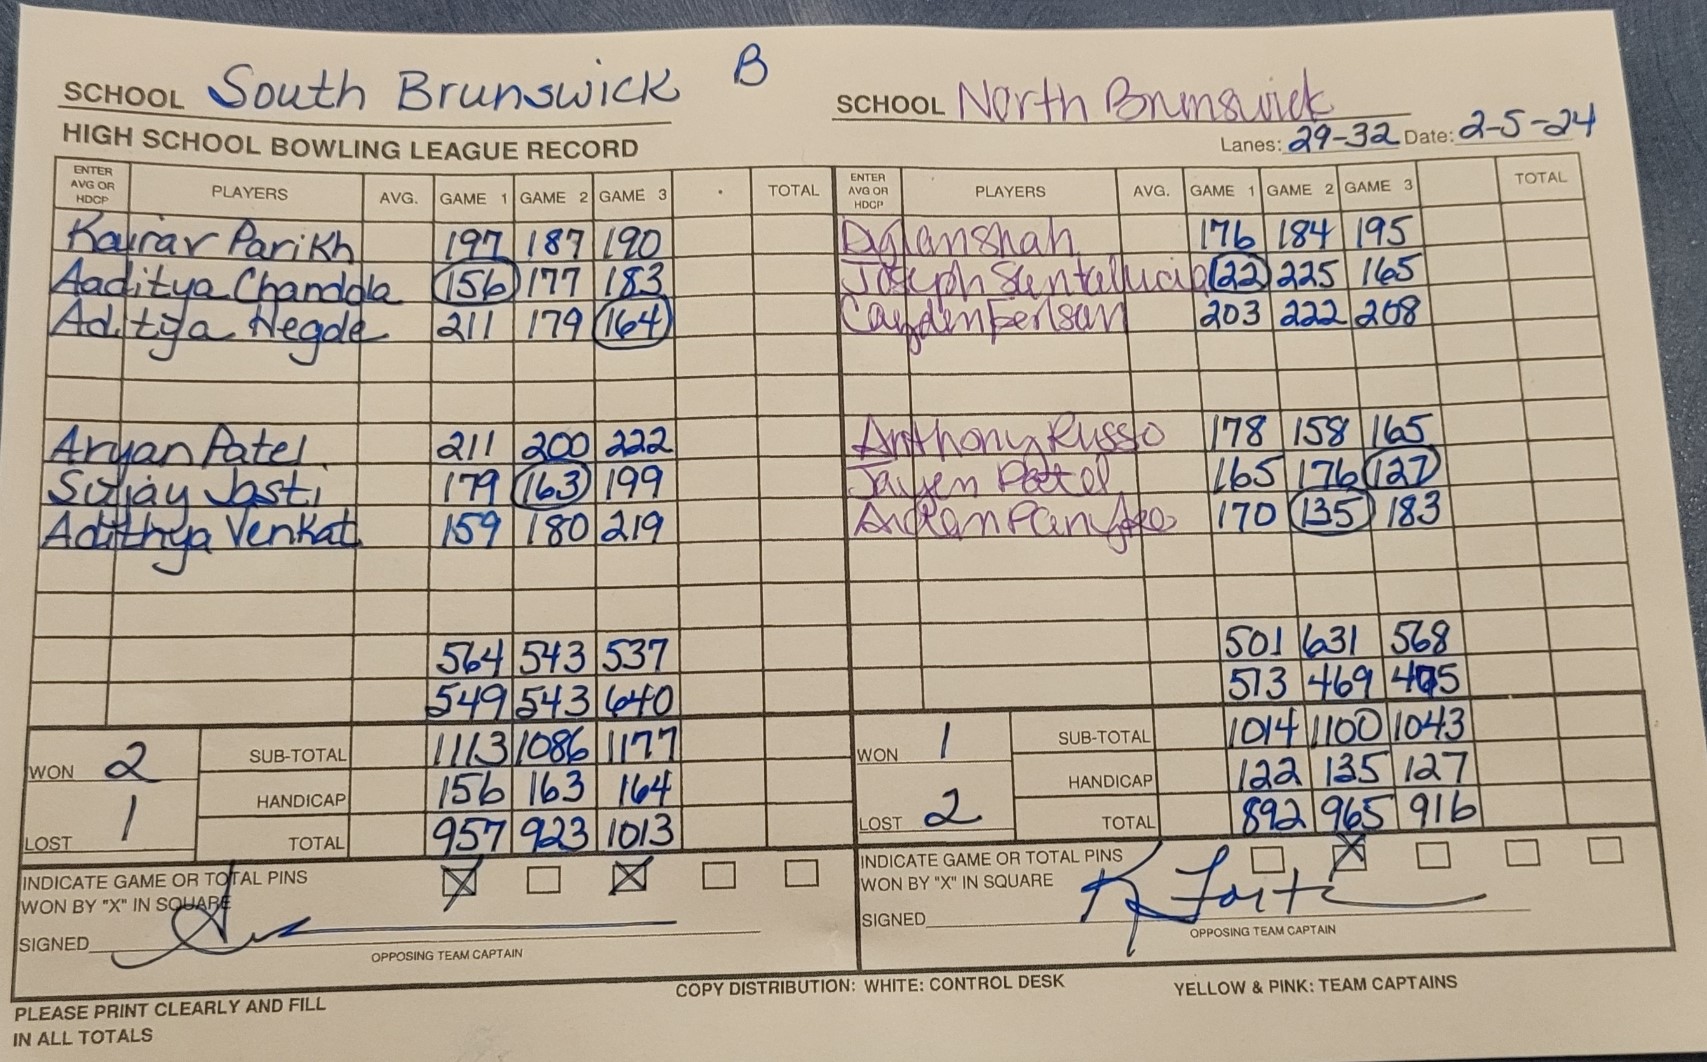 SCHOOL South Brunswick B
SCHOOL North Brunswick
HIGH SCHOOL BOWLING LEAGUE RECORD
Lanes: 29-32 Date: 2-5-24
ENTER AVG OR HDCP PLAYERS AVG. GAME 1 GAME 2 GAME 3 TOTAL
ENTER AVG OR HDCP PLAYERS AVG. GAME 1 GAME 2 GAME 3 TOTAL
Kairav Parikh 197 187 190
176 184 195
Aaditya Chandola 156 177 183
Joseph 122 225 165
Aditya Hegde 211 179 164
Cayden 203 222 208
Aryan Patel 211 200 222
Anthony Russo 178 158 165
Sujay Jasti 179 163 199
Jayen Patel 165 176 127
Adithya Venkat 159 180 219
170 135 183
564 543 537
501 631 568
549 543 640
513 469 475
WON 2 SUB-TOTAL 1113 1086 1177
WON 1 SUB-TOTAL 1014 1100 1043
HANDICAP 156 163 164
HANDICAP 122 135 127
LOST 1 TOTAL 957 923 1013
LOST 2 TOTAL 892 965 916
INDICATE GAME OR TOTAL PINS
WON BY "X" IN SQUARE
INDICATE GAME OR TOTAL PINS
WON BY "X" IN SQUARE
SIGNED
OPPOSING TEAM CAPTAIN
SIGNED
OPPOSING TEAM CAPTAIN
PLEASE PRINT CLEARLY AND FILL
IN ALL TOTALS
COPY DISTRIBUTION: WHITE: CONTROL DESK YELLOW & PINK: TEAM CAPTAINS